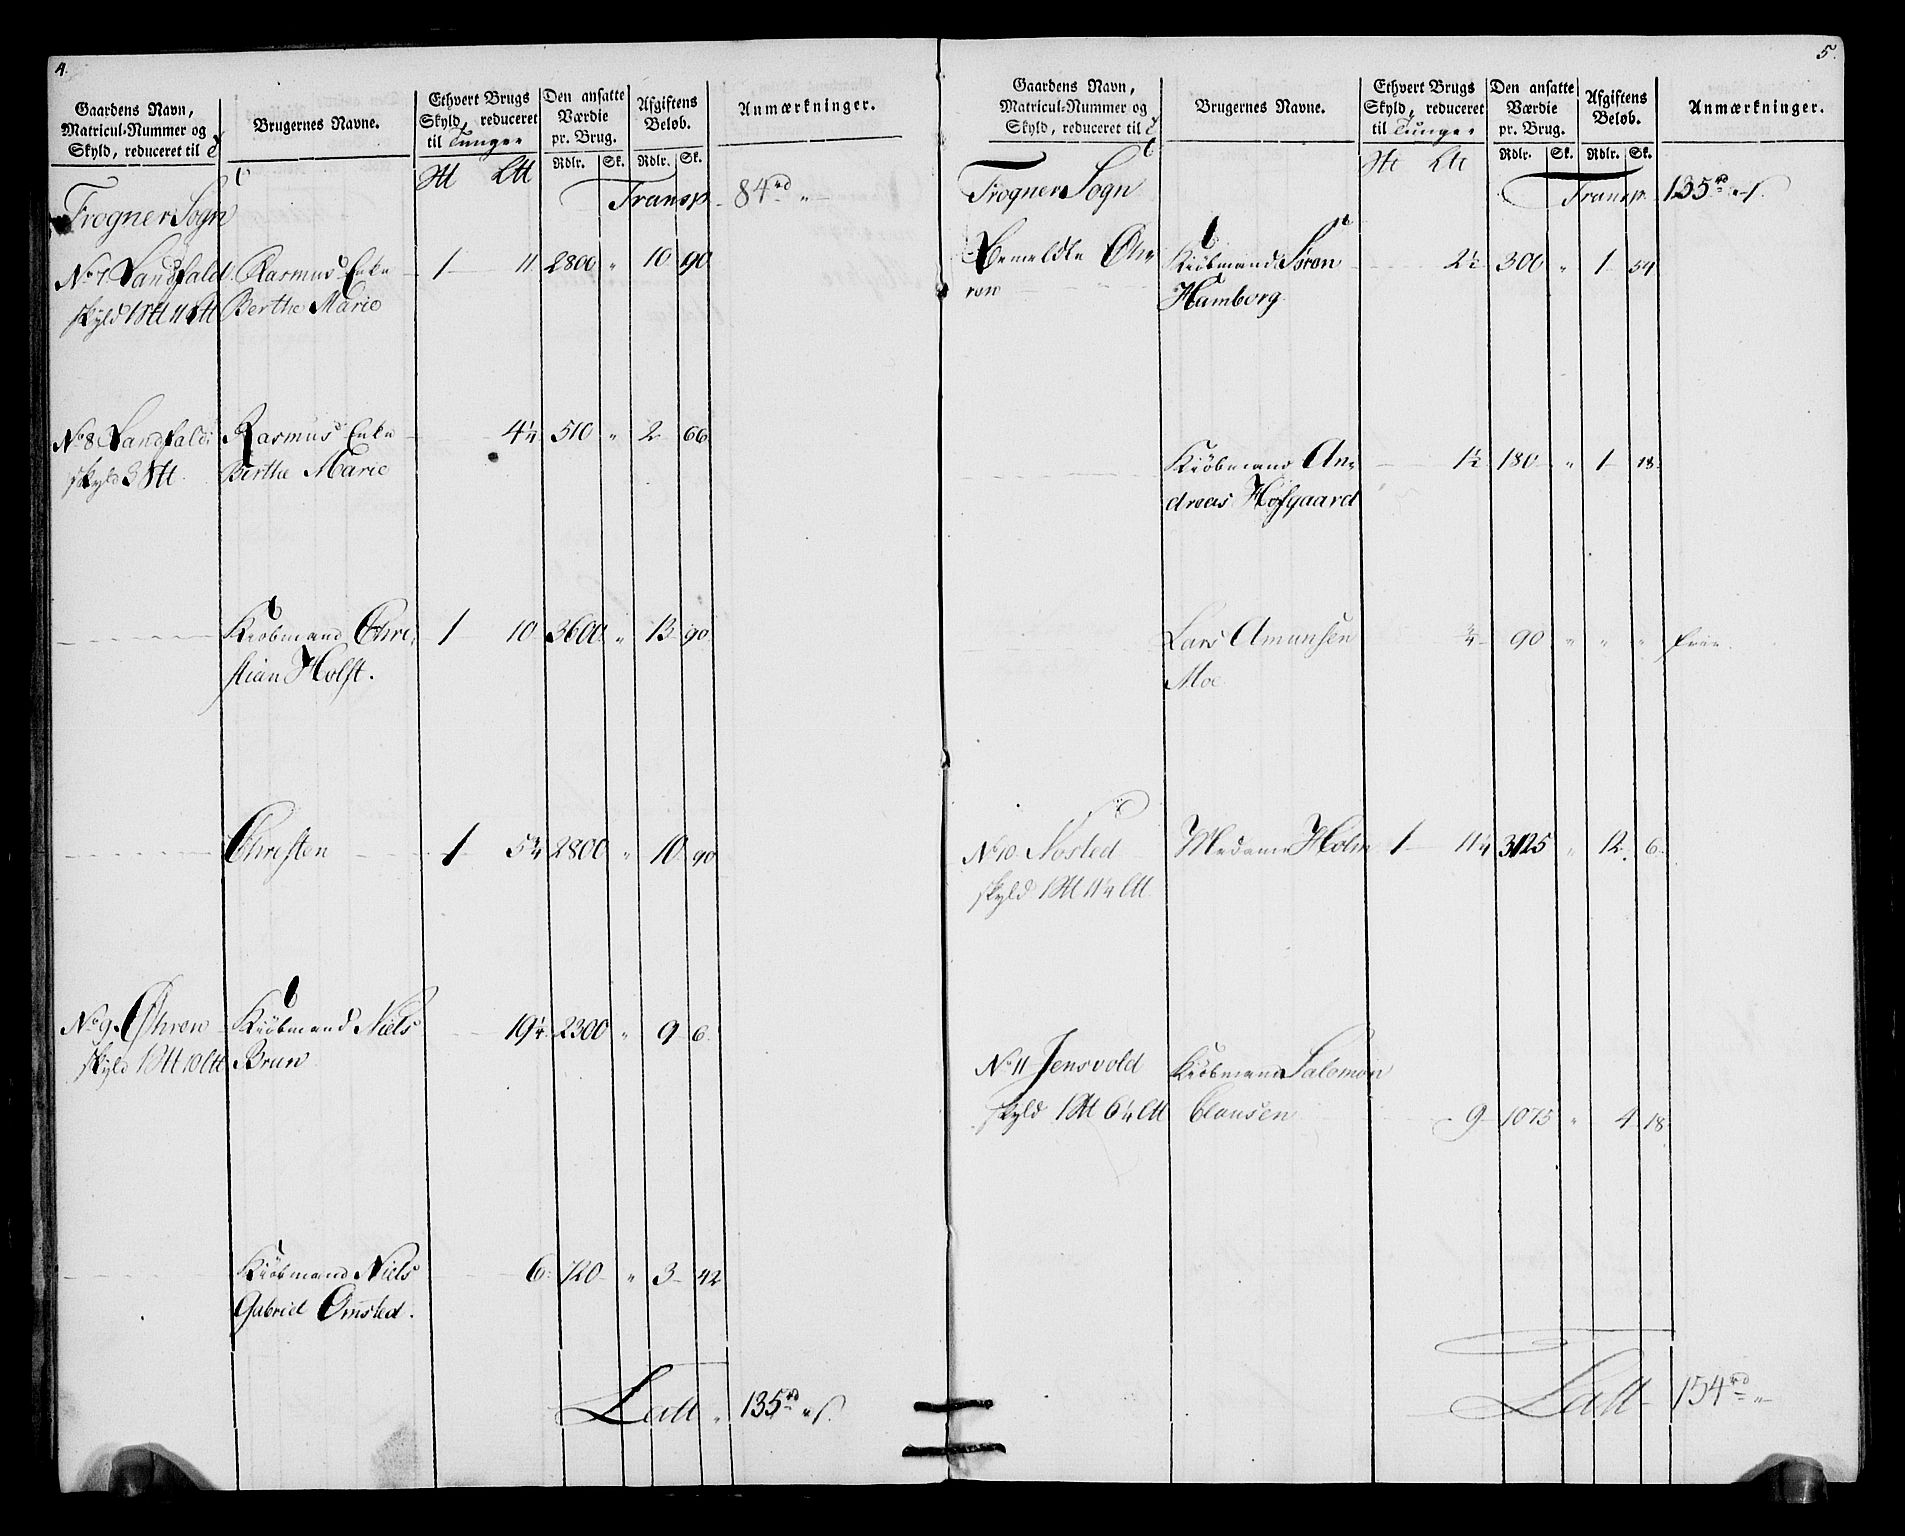 4.
Gaardens Navn,
Matricul-Nummer og
Skyld, reduceret til
Brugernes Navne.
Ethvert Brugs
Skyld, reduceret
til Tunge
Den ansatte
Værdie
pr. Brug.
Rdlr. Sk.
Afgiftens
Beløb.
Rdlr. Sk.
Anmærkninger.
Frogner Sogn
Transp. 84 rd "
No 7 Sandfald Rasmus Enke 1 11 2800 " 10 90
skyld 1 11 Berthe Marie
No 8 Sandfald Rasmus Enke 4¼ 510 " 2 66
skyld 3 Berthe Marie
Kiøbmand Chri- 1 10 3600 " 13 90
stian Holst.
Christen 1 5¾ 2800 " 10 90
No 9 Øhren Kiøbmand Niels 19¼ 2300 " 9 6
skyld 1 10 Brun
Kiøbmand Niels 6 720 " 3 42
Gabriel Omsted.
Latt 135 rd " s.
5.
Gaardens Navn,
Matricul-Nummer og
Skyld, reduceret til
Brugernes Navne.
Ethvert Brugs
Skyld, reduceret
til Tunge
Den ansatte
Værdie
pr. Brug.
Rdlr. Sk.
Afgiftens
Beløb.
Rdlr. Sk.
Anmærkninger.
Frogner Sogn
Transp. 135 rd " s.
Bemeldte Øh- Kiøbmand Søren 2½ 300 " 1 54
ren Hamborg.
Kiøbmand An- 1½ 180 " 1 18
dreas Hofgaard
Lars Amunsen ¾ 90 " " " frie.
Moe
No 10 Nøsted Madame Holm 1 11¼ 3125 " 12 6
skyld 1 11¼
No 11 Jensvold Kiøbmand Salomon
skyld 1 6¼ Clausen 9 1075 " 4 18
Latt 154 rd "